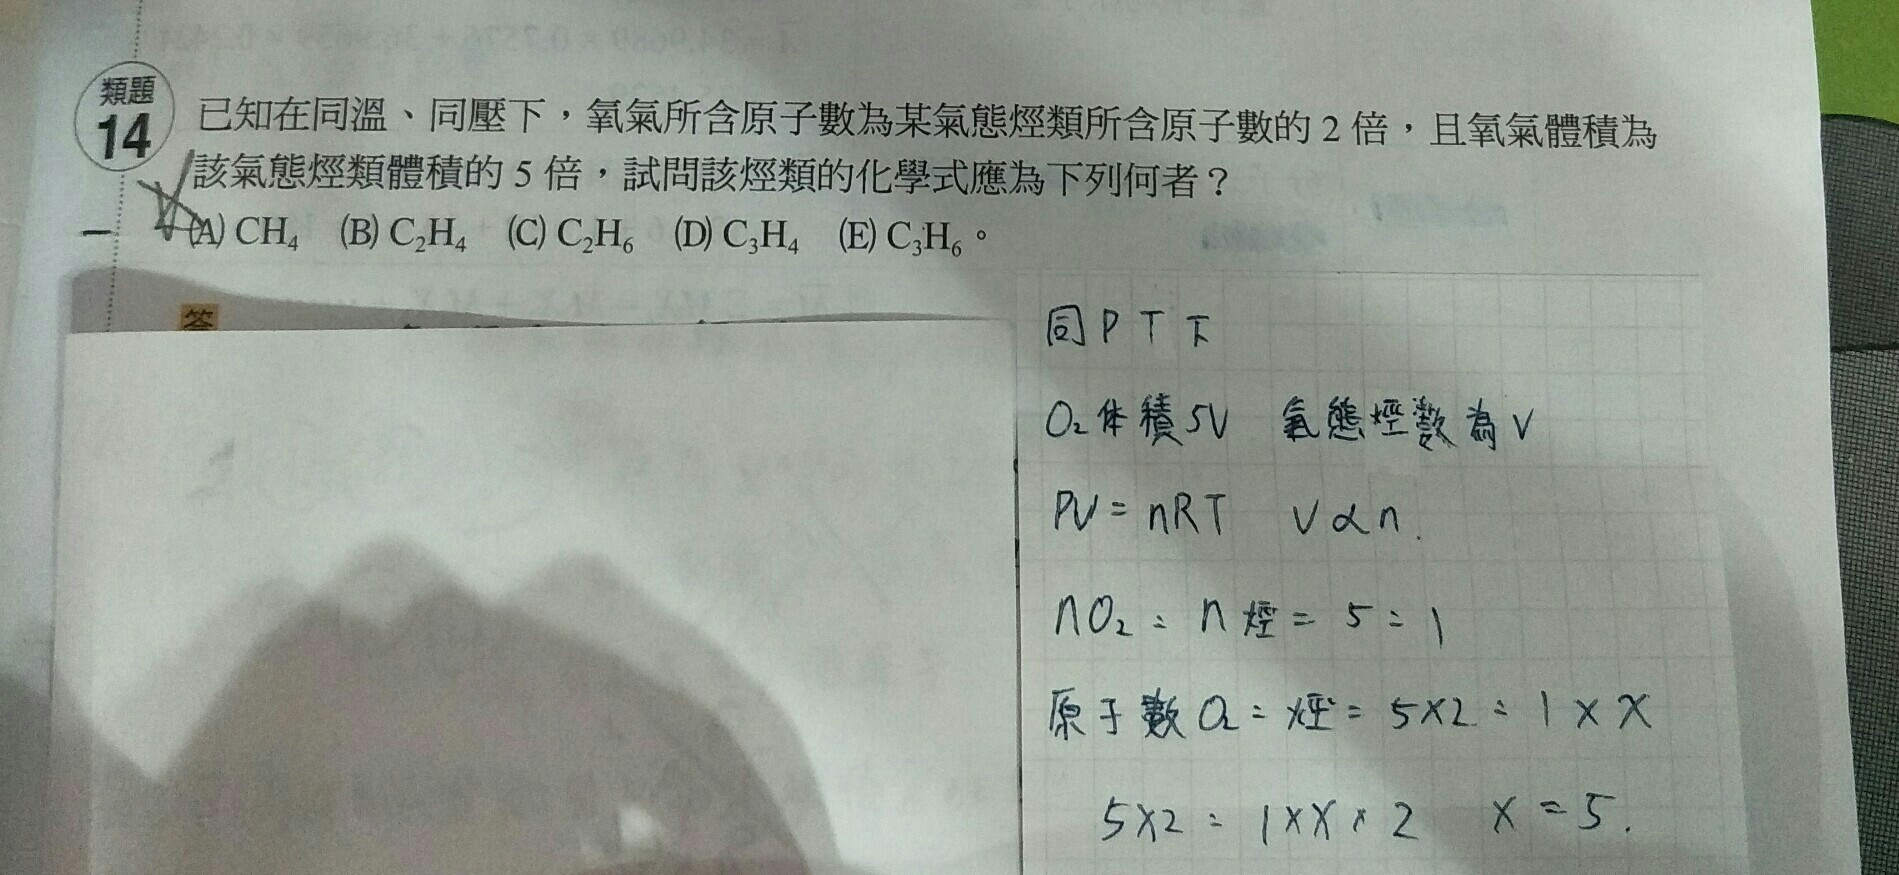 類題
14
已知在同溫、同壓下，氧氣所含原子數為某氣態烴類所含原子數的 2 倍，且氧氣體積為
該氣態烴類體積的 5 倍，試問該烴類的化學式應為下列何者？
(A) CH₄ (B) C₂H₄ (C) C₂H₆ (D) C₃H₄ (E) C₃H₆。
答
同 P T 下
O₂ 体積 5V 氣態烴數為 V
PV = nRT V ∝ n.
nO₂ : n烴 = 5 : 1
原子數 O₂ : 烴 = 5×2 : 1 × X
5×2 = 1×X×2 X = 5.